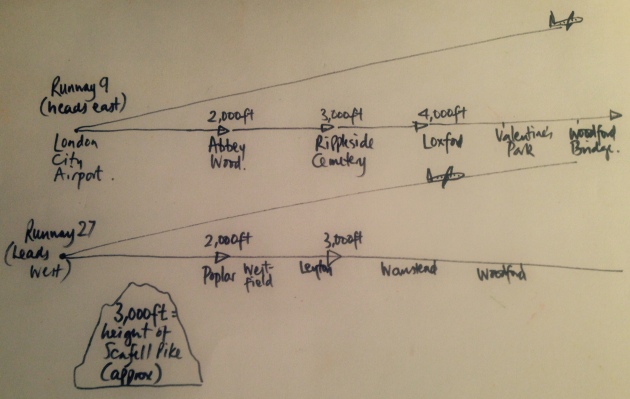 Runway 9
(heads east)
London
City
Airport.
2,000ft
Abbey
Wood.
3,000ft
Rippleside
Cemetery
4,000ft
Loxford
Valentine's
Park
Woodford
Bridge.
Runway 27
(heads
west)
2,000ft
Poplar
West-
field
3,000ft
Leyton
Wanstead
Woodford
3,000ft =
height of
Scafell Pike
(approx)